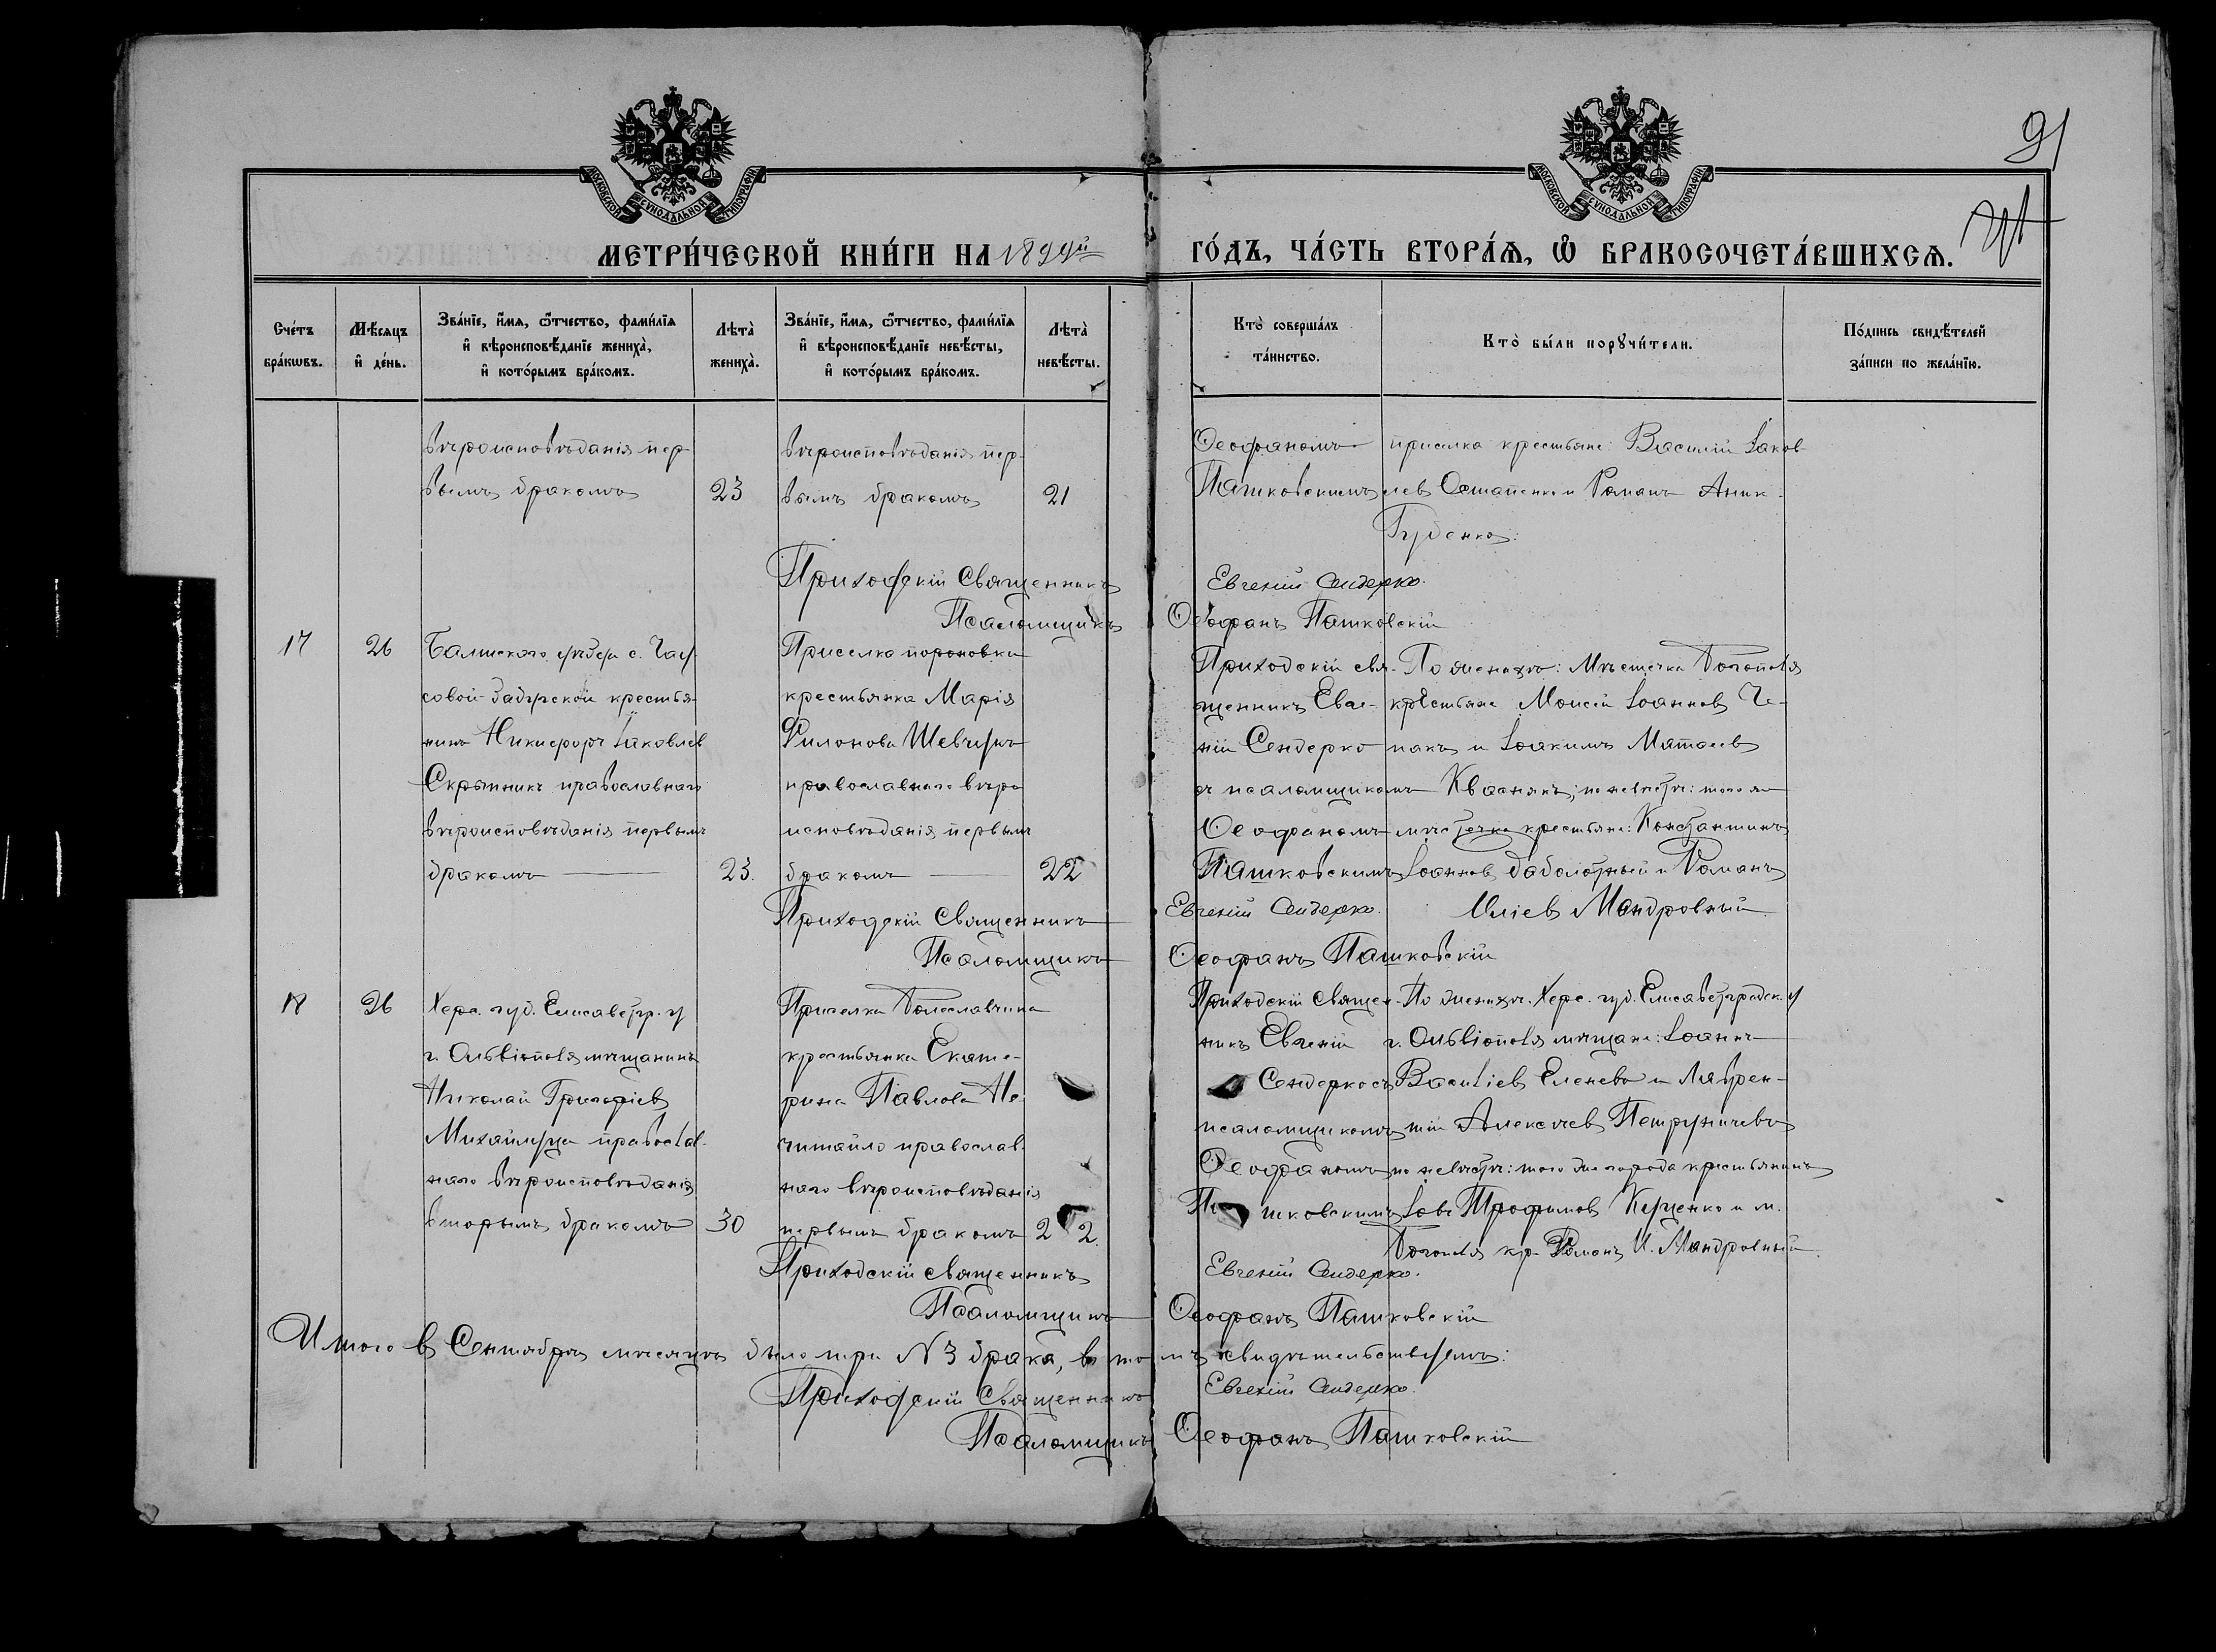 МОСКОВСКОЙ СУНОДАЛЬНОЙ ТИПОГРАФІИ
МОСКОВСКОЙ СУНОДАЛЬНОЙ ТИПОГРАФІИ
91
МЕТРИ́ЧЕСКОЙ КНИ́ГИ НА 1899й ГО́ДЪ, ЧА́СТЬ ВТОРА́Я, Ѡ БРАКОСОЧЕТА́ВШИХСѦ.
Сче́тъ бра́кѡвъ.
Мѣ́сяцъ и҆ де́нь.
Зва́нїе, и҆́мѧ, ѻ҆́тчество, фами́лїѧ и҆ вѣроисповѣ́данїе жениха̀, и҆ кото́рымъ бра́комъ.
Лѣта̀ жениха̀.
Зва́нїе, и҆́мѧ, ѻ҆́тчество, фами́лїѧ и҆ вѣроисповѣ́данїе невѣ́сты, и҆ кото́рымъ бра́комъ.
Лѣта̀ невѣ́сты.
Кто̀ соверша́лъ та́инство.
Кто̀ бы́ли порꙋчи́тели.
По́дпись свидѣ́телей за́писи по жела́нїю.
вѣроисповѣданія пер-
вымъ бракомъ 23
вѣроисповѣданія пер-
вымъ бракомъ 21
Ѳеофаномъ
Пашковскимъ
приселка крестьяне: Василій Іаков-
лев Остапенко и Романъ Аник.
Губенко.
Приходскій Священникъ Евгеній Сендерко.
Псаломщикъ Ѳеофанъ Пашковскій
17 26
Балтскаго уѣзда с. Чау-
совой-Забугской крестья-
нинъ Никифоръ Іаковлев
Скрыпникъ православнаго
вѣроисповѣданія первымъ
бракомъ 23.
Приселка
крестьянка Марія
Филонова Шевчукъ
православнаго вѣро
исповѣданія первымъ
бракомъ 22
Приходскій свя-
щенникъ Евге-
ній Сендерко
съ псаломщикомъ
Ѳеофаномъ
Пашковскимъ
По женихѣ: Мѣстечка Богополя
крестьяне Моисей Іоаннов Че-
пакъ и Іоакимъ Матѳеев
Кваснякъ; по невѣстѣ: того же
мѣстечка крестьяне: Константинъ
Іоаннов Заболотный и Романъ
Иліев Мандровный.
Приходскій Священникъ Евгеній Сендерко.
Псаломщикъ Ѳеофанъ Пашковскій
18 26
Херс. губ. Елисаветгр. у
г. Ольвіополя мѣщанинъ
Николай Григоріев
Михайлуца православ-
наго вѣроисповѣданія
вторымъ бракомъ 30
Приселка Болеславчика
крестьянка Екате-
рина Павлова Не-
читайло православ-
наго вѣроисповѣданія
первымъ бракомъ 22.
Приходскій Священ-
никъ Евгеній
Сендерко съ
псаломщикомъ
Ѳеофаномъ
Пашковскимъ
По женихѣ. Херс. губ. Елисаветградск. у
г. Ольвіополя мѣщане: Іоаннъ
Василіев Еленев и Лаврен-
тій Алексѣев
по невѣстѣ: того же города крестьянинъ
Іовъ Трофимов и м.
Богополя кр. Романъ И. Мандровный.
Приходскій священникъ Евгеній Сендерко.
Псаломщикъ Ѳеофанъ Пашковскій
Итого в Сентябрѣ мѣсяцѣ было три N 3 брака, в томъ свидѣтельствуемъ:
Приходскій Священникъ Евгеній Сендерко.
Псаломщикъ Ѳеофанъ Пашковскій